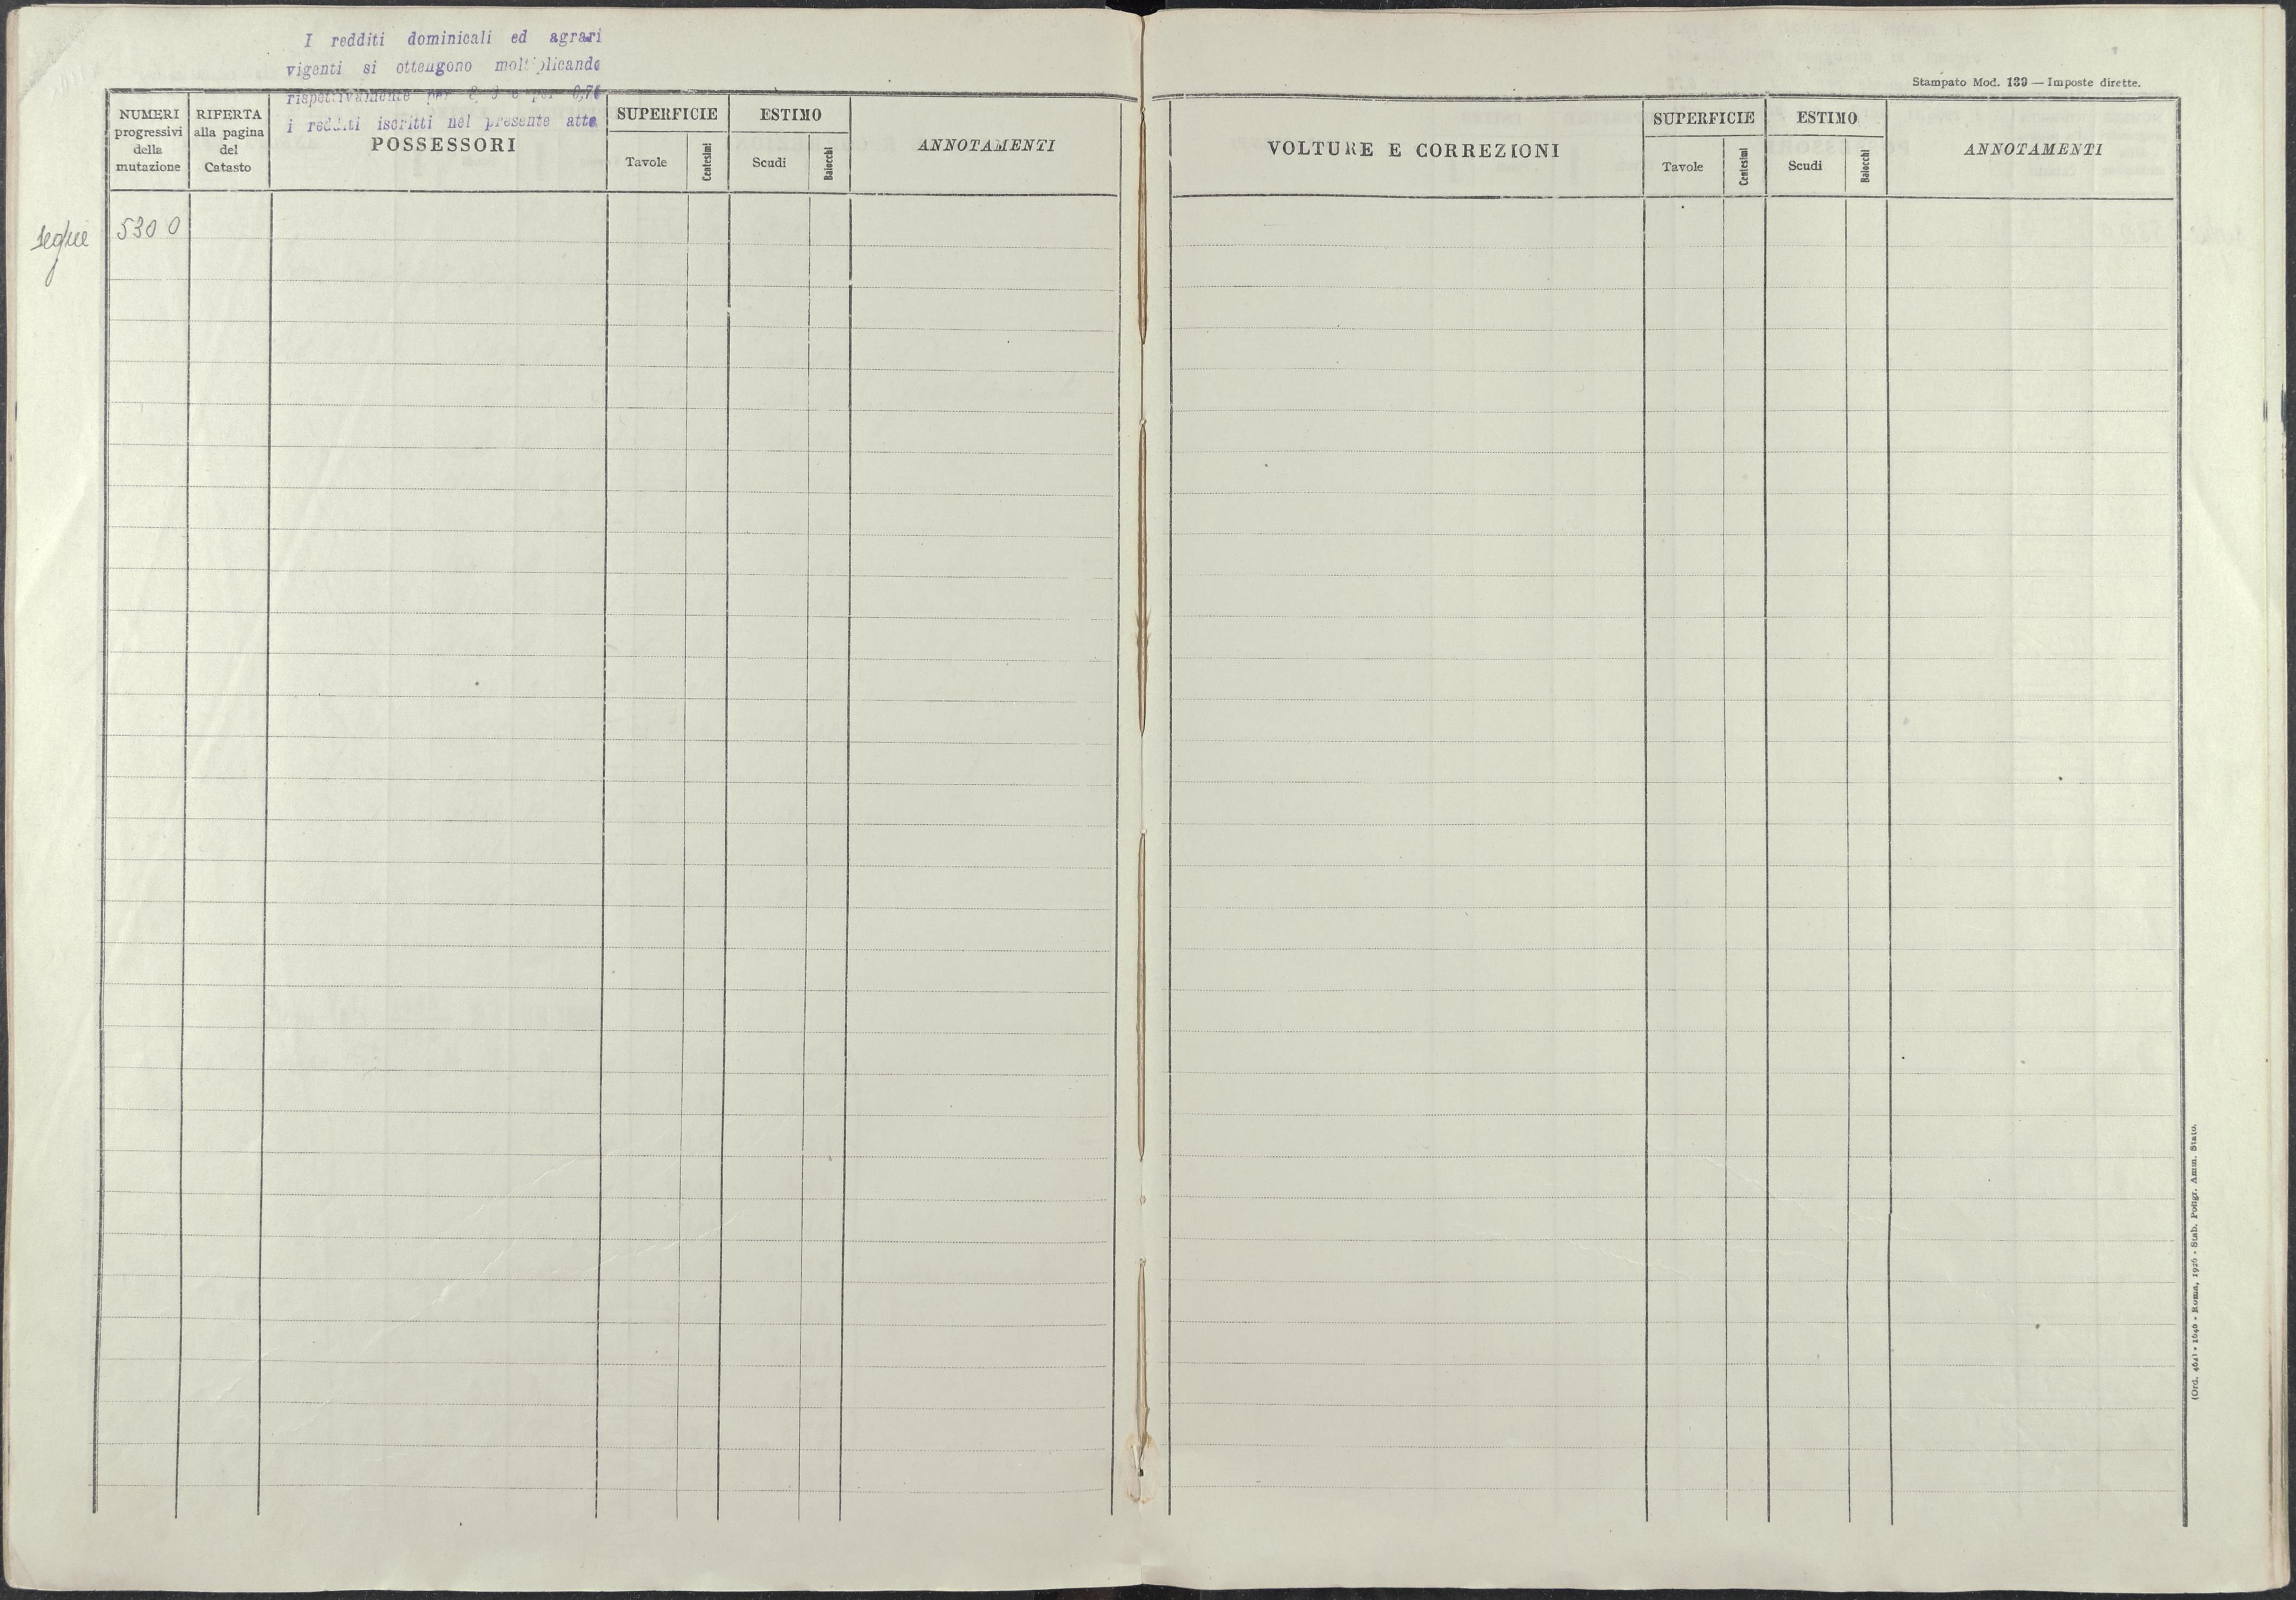 I redditi dominicali ed agrari
vigenti si ottengono moltiplicando
rispettivamente per e per 0,76
i redditi iscritti nel presente atto
Stampato Mod. 139 — Imposte dirette.
NUMERI
progressivi
della
mutazione
RIFERTA
alla pagina
del
Catasto
POSSESSORI
SUPERFICIE
Tavole
Centesimi
ESTIMO
Scudi
Baiocchi
ANNOTAMENTI
VOLTURE E CORREZIONI
SUPERFICIE
Tavole
Centesimi
ESTIMO
Scudi
Baiocchi
ANNOTAMENTI
segue 5300
(Ord. 4641 - 1640 - Roma, 1926 - Stab. Poligr. Amm. Stato.